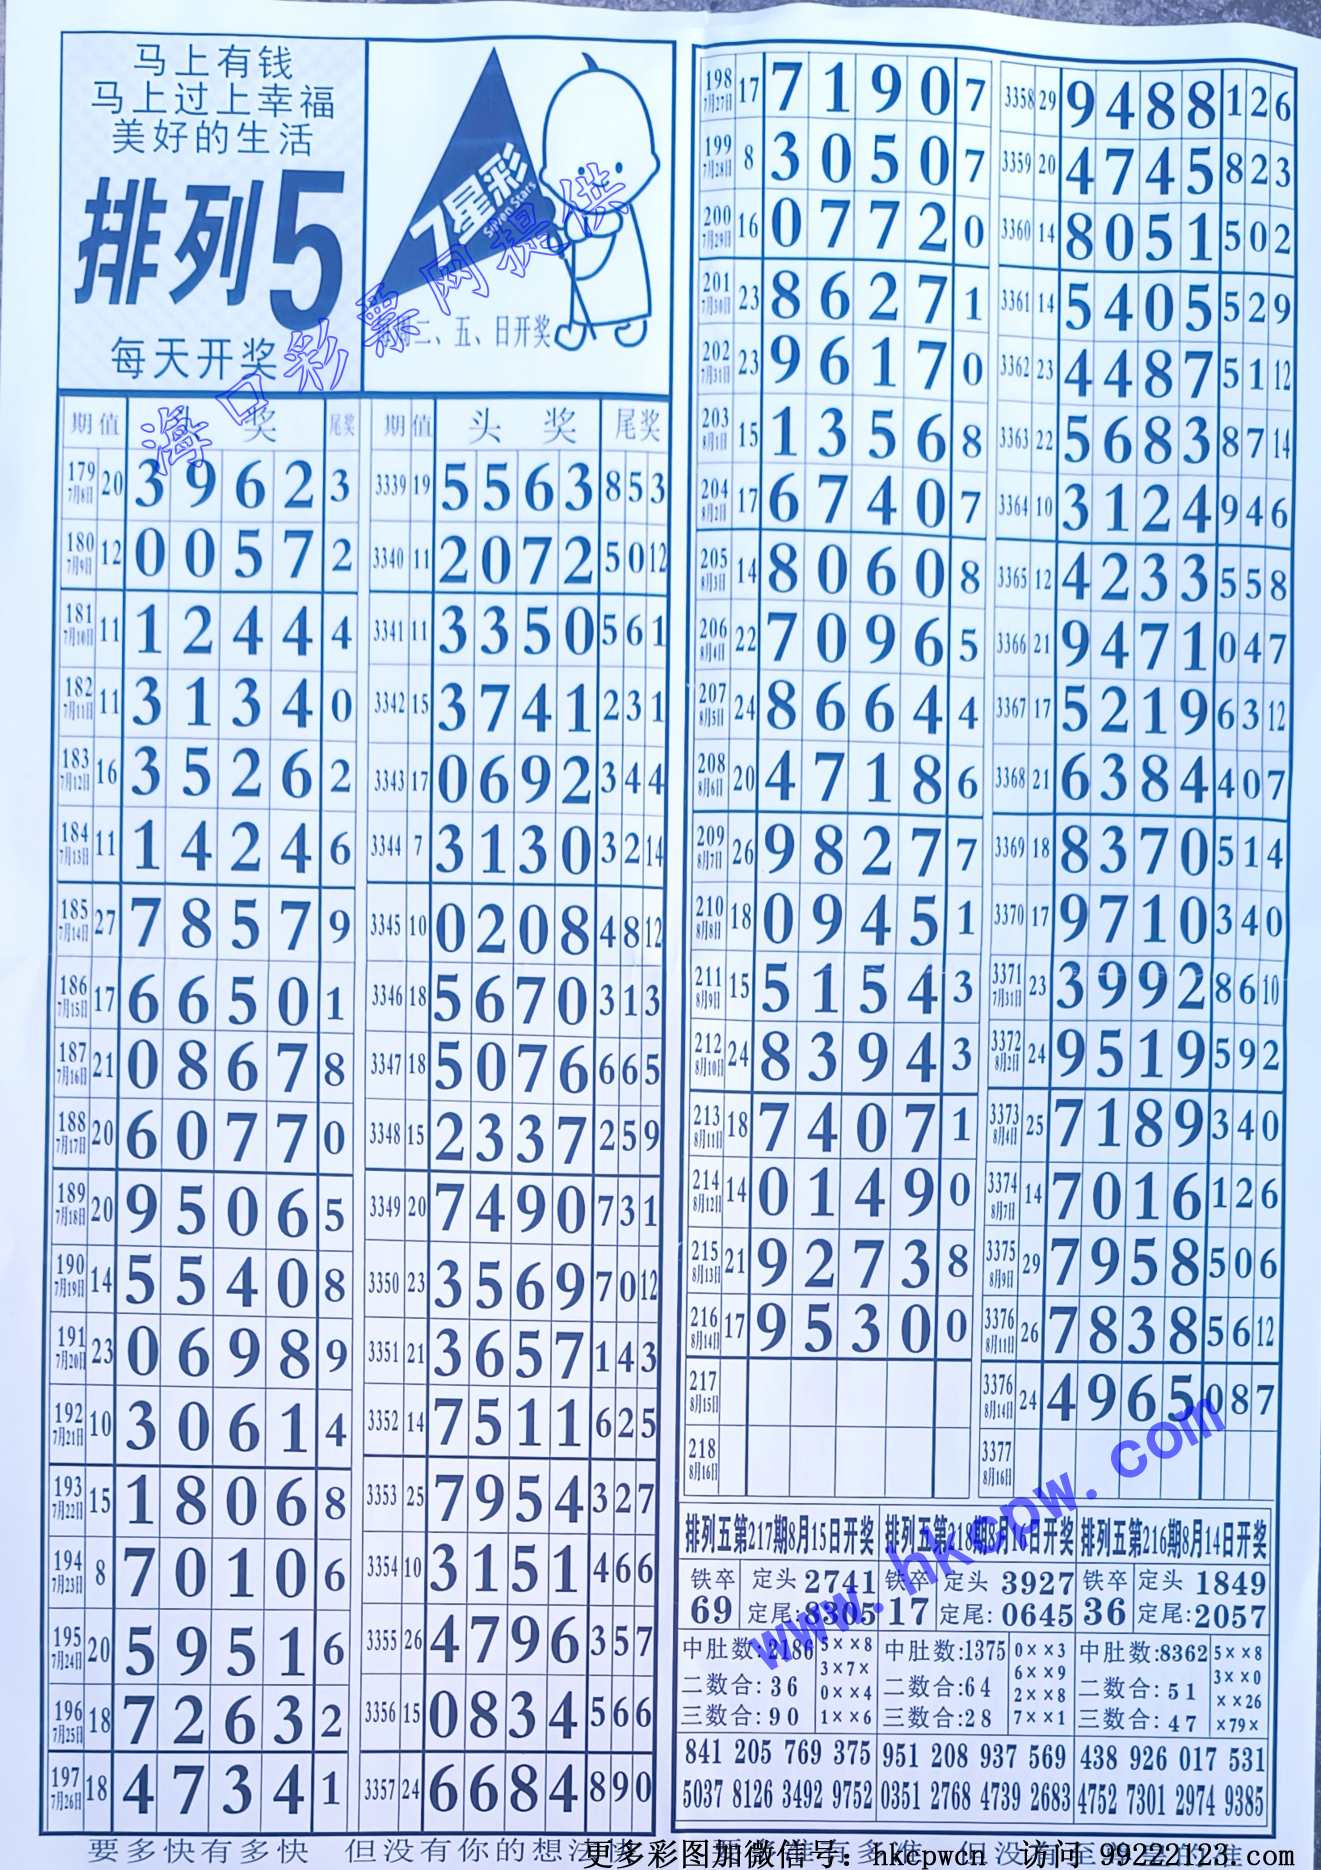 马上有钱
马上过上幸福
美好的生活
排列5
每天开奖
7星彩
Seven Stars
二、五、日开奖
海口彩票网提供
期 值 奖 尾奖
179 7月8日 20 3 9 6 2 3
180 7月9日 12 0 0 5 7 2
181 7月10日 11 1 2 4 4 4
182 7月11日 11 3 1 3 4 0
183 7月12日 16 3 5 2 6 2
184 7月13日 11 1 4 2 4 6
185 7月14日 27 7 8 5 7 9
186 7月15日 17 6 6 5 0 1
187 7月16日 21 0 8 6 7 8
188 7月17日 20 6 0 7 7 0
189 7月18日 20 9 5 0 6 5
190 7月19日 14 5 5 4 0 8
191 7月20日 23 0 6 9 8 9
192 7月21日 10 3 0 6 1 4
193 7月22日 15 1 8 0 6 8
194 7月23日 8 7 0 1 0 6
195 7月24日 20 5 9 5 1 6
196 7月25日 18 7 2 6 3 2
197 7月26日 18 4 7 3 4 1
期 值 头 奖 尾奖
3339 19 5 5 6 3 8 5 3
3340 11 2 0 7 2 5 0 12
3341 11 3 3 5 0 5 6 1
3342 15 3 7 4 1 2 3 1
3343 17 0 6 9 2 3 4 4
3344 7 3 1 3 0 3 2 14
3345 10 0 2 0 8 4 8 12
3346 18 5 6 7 0 3 1 3
3347 18 5 0 7 6 6 6 5
3348 15 2 3 3 7 2 5 9
3349 20 7 4 9 0 7 3 1
3350 23 3 5 6 9 7 0 12
3351 21 3 6 5 7 1 4 3
3352 14 7 5 1 1 6 2 5
3353 25 7 9 5 4 3 2 7
3354 10 3 1 5 1 4 6 6
3355 26 4 7 9 6 3 5 7
3356 15 0 8 3 4 5 6 6
3357 24 6 6 8 4 8 9 0
198 7月27日 17 7 1 9 0 7
199 7月28日 8 3 0 5 0 7
200 7月29日 16 0 7 7 2 0
201 7月30日 23 8 6 2 7 1
202 7月31日 23 9 6 1 7 0
203 8月1日 15 1 3 5 6 8
204 8月2日 17 6 7 4 0 7
205 8月3日 14 8 0 6 0 8
206 8月4日 22 7 0 9 6 5
207 8月5日 24 8 6 6 4 4
208 8月6日 20 4 7 1 8 6
209 8月7日 26 9 8 2 7 7
210 8月8日 18 0 9 4 5 1
211 8月9日 15 5 1 5 4 3
212 8月10日 24 8 3 9 4 3
213 8月11日 18 7 4 0 7 1
214 8月12日 14 0 1 4 9 0
215 8月13日 21 9 2 7 3 8
216 8月14日 17 9 5 3 0 0
217 8月15日
218 8月16日
3358 29 9 4 8 8 1 2 6
3359 20 4 7 4 5 8 2 3
3360 14 8 0 5 1 5 0 2
3361 14 5 4 0 5 5 2 9
3362 23 4 4 8 7 5 1 12
3363 22 5 6 8 3 8 7 14
3364 10 3 1 2 4 9 4 6
3365 12 4 2 3 3 5 5 8
3366 21 9 4 7 1 0 4 7
3367 17 5 2 1 9 6 3 12
3368 21 6 3 8 4 4 0 7
3369 18 8 3 7 0 5 1 4
3370 17 9 7 1 0 3 4 0
3371 7月31日 23 3 9 9 2 8 6 10
3372 8月2日 24 9 5 1 9 5 9 2
3373 8月4日 25 7 1 8 9 3 4 0
3374 8月7日 14 7 0 1 6 1 2 6
3375 8月9日 29 7 9 5 8 5 0 6
3376 8月11日 26 7 8 3 8 5 6 12
3376 8月14日 24 4 9 6 5 0 8 7
3377 8月16日
www.hkcpw.com
排列五第217期8月15日开奖
铁卒 69 定头 2741
定尾:8305
中肚数:2186
二数合:36
三数合:90
5××8
3×7×
0××4
1××6
841 205 769 375
5037 8126 3492 9752
排列五第218期8月16日开奖
铁卒 17 定头 3927
定尾:0645
中肚数:1375
二数合:64
三数合:28
0××3
6××9
2××8
7××1
951 208 937 569
0351 2768 4739 2683
排列五第216期8月14日开奖
铁卒 36 定头 1849
定尾:2057
中肚数:8362
二数合:51
三数合:47
5××8
3××0
××26
×79×
438 926 017 531
4752 7301 2974 9385
要多快有多快 但没有你的想法
更多彩图加微信号: hkcpwcn 访问 99222123.com